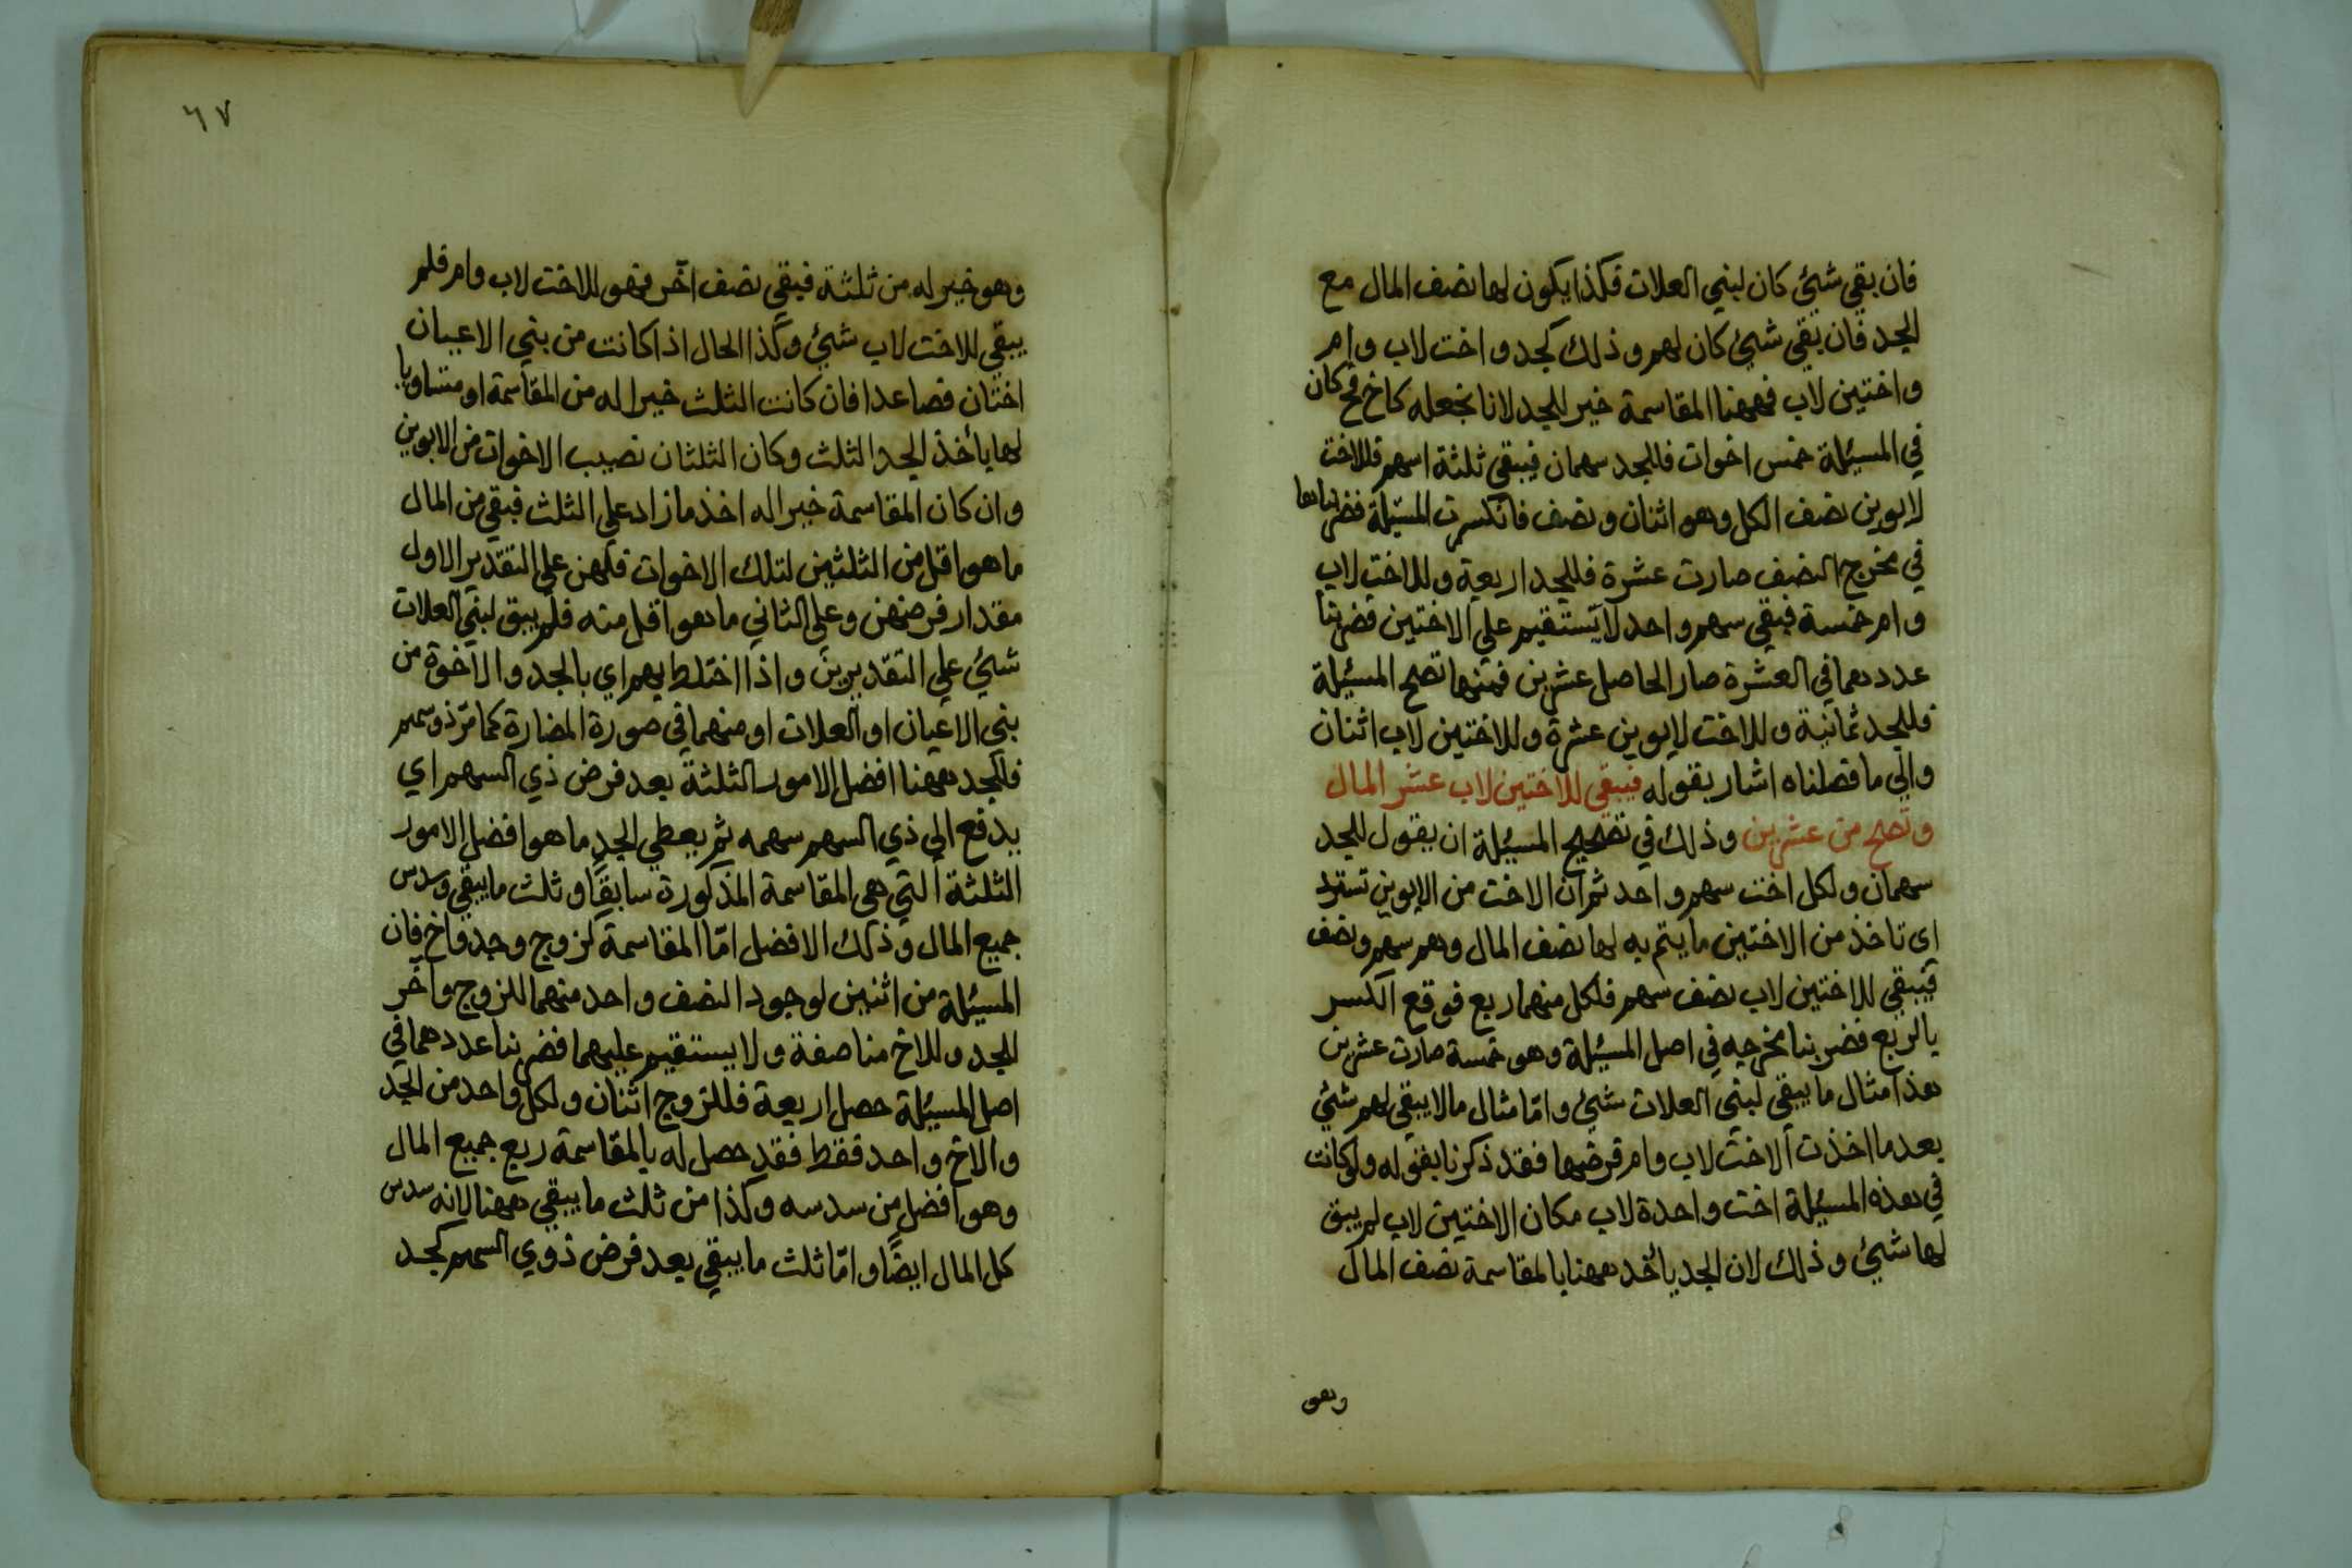 فان بقي شيئ كان لبني العلات فكذا يكون لها نصف المال مع
الجد فان بقي شيئ كان لهم وذلك كجد واخت لاب وام
واختين لاب فههنا المقاسمة خير للجد لانا نجعله كاخ فح كان
في المسيلة خمس اخوات فللجد سهمان فيبقي ثلثة اسهم فللاخت
لابوين نصف الكل وهو اثنان ونصف فانكسرت المسيلة فضربناها
في مخرج النصف صارت عشرة فللجد اربعة وللاخت لاب
وام خمسة فيبقي سهم واحد لا يستقيم علي الاختين فضربنا
عددهما في العشرة صار الحاصل عشرين فمنها تصح المسيلة
فللجد ثمانية وللاخت لابوين عشرة وللاختين لاب اثنان
والي ما فصلناه اشار بقوله فيبقي للاختين لاب عشر المال
وتصح من عشرين وذلك في تصحيح المسيلة ان يقول للجد
سهمان ولكل اخت سهم واحد ثم ان الاخت من الابوين تسترد
اى تاخذ من الاختين ما يتم به لها نصف المال وهم سهم ونصف
فيبقي للاختين لاب نصف سهم فلكل منهما ربع فوقع الكسر
بالربع فضربنا مخرجه في اصل المسيلة وهو خمسة صارت عشرين
هذا مثال ما يبقي لبني العلات شيئ وامّا مثال ما لا يبقي لهم شيئ
بعد ما اخذت الاخت لاب وام فرضها فقد ذكرنا بقوله ولو كانت
في هذه المسيلة اخت واحدة لاب مكان الاختين لاب لم يبق
لها شيئ وذلك لان الجد يأخذ ههنا بالمقاسمة نصف المال
وهو
٦٧
وهو خير له من ثلثة فيبقي نصف آخر فهو للاخت لاب وام فلم
يبقي للاخت لاب شيئ وكذا الحال اذا كانت من بني الاعيان
اختان فصاعدا فان كانت الثلث خيرا له من المقاسمة او متساويا
لها يأخذ الجد الثلث وكان الثلثان نصيب الاخوات من الابوين
وان كان المقاسمة خيرا له اخذ ما زاد علي الثلث فبقي من المال
ما هو اقل من الثلثين لتلك الاخوات فلهن علي التقدير الاول
مقدار فرضهن وعلي الثاني ما هو اقل منه فلم يبق لبني العلات
شيئ علي التقديرين واذا اختلط بهم اي بالجد والاخوة من
بني الاعيان او العلات او منهما في صورة المضارة كما مرّ ذو سهم
فللجد ههنا افضل الامور الثلثة بعد فرض ذي السهم اي
يدفع الي ذي السهم سهمه ثم يعطي الجد ما هو افضل الامور
الثلثة التي هي المقاسمة المذكورة سابقًا وثلث ما يبقي وسدس
جميع المال وذلك الافضل امّا المقاسمة كزوج وجد واخ فان
المسيلة من اثنين لوجود النصف واحد منهما للزوج وآخر
للجد وللاخ مناصفة ولا يستقيم عليهما فضربنا عددهما في
اصل المسيلة حصل اربعة فللزوج اثنان ولكل واحد من الجد
والاخ واحد فقط فقد حصل له بالمقاسمة ربع جميع المال
وهو افضل من سدسه وكذا من ثلث ما يبقي ههنا لانه سدس
كل المال ايضًا وامّا ثلث ما يبقي بعد فرض ذوي السهم كجد